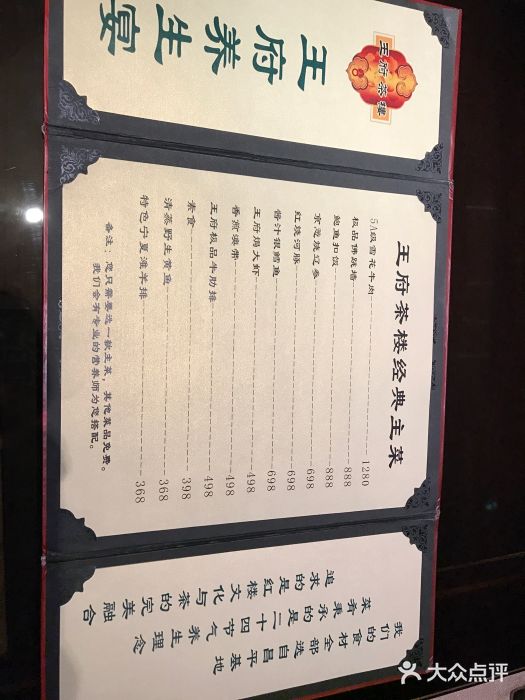 王府茶楼
王府养生宴
王府茶楼经典主菜
5A级雪花牛肉------1280
极品佛跳墙------888
鲍鱼扣饭------888
京葱烧辽参------698
红烧河豚------698
酱汁银鳕鱼------698
王府焗大虾------498
香煎澳带------498
王府极品牛肋排------498
素食------398
清蒸野生黄鱼------368
特色宁夏滩羊排------368
备注：您只需要选一款主菜，其他菜品免费。
我们会有专业的营养师为您搭配。
我们的食材全部选自昌平基地
菜肴秉承的是二十四节气养生理念
追求的是红楼文化与茶的完美融合
大众点评